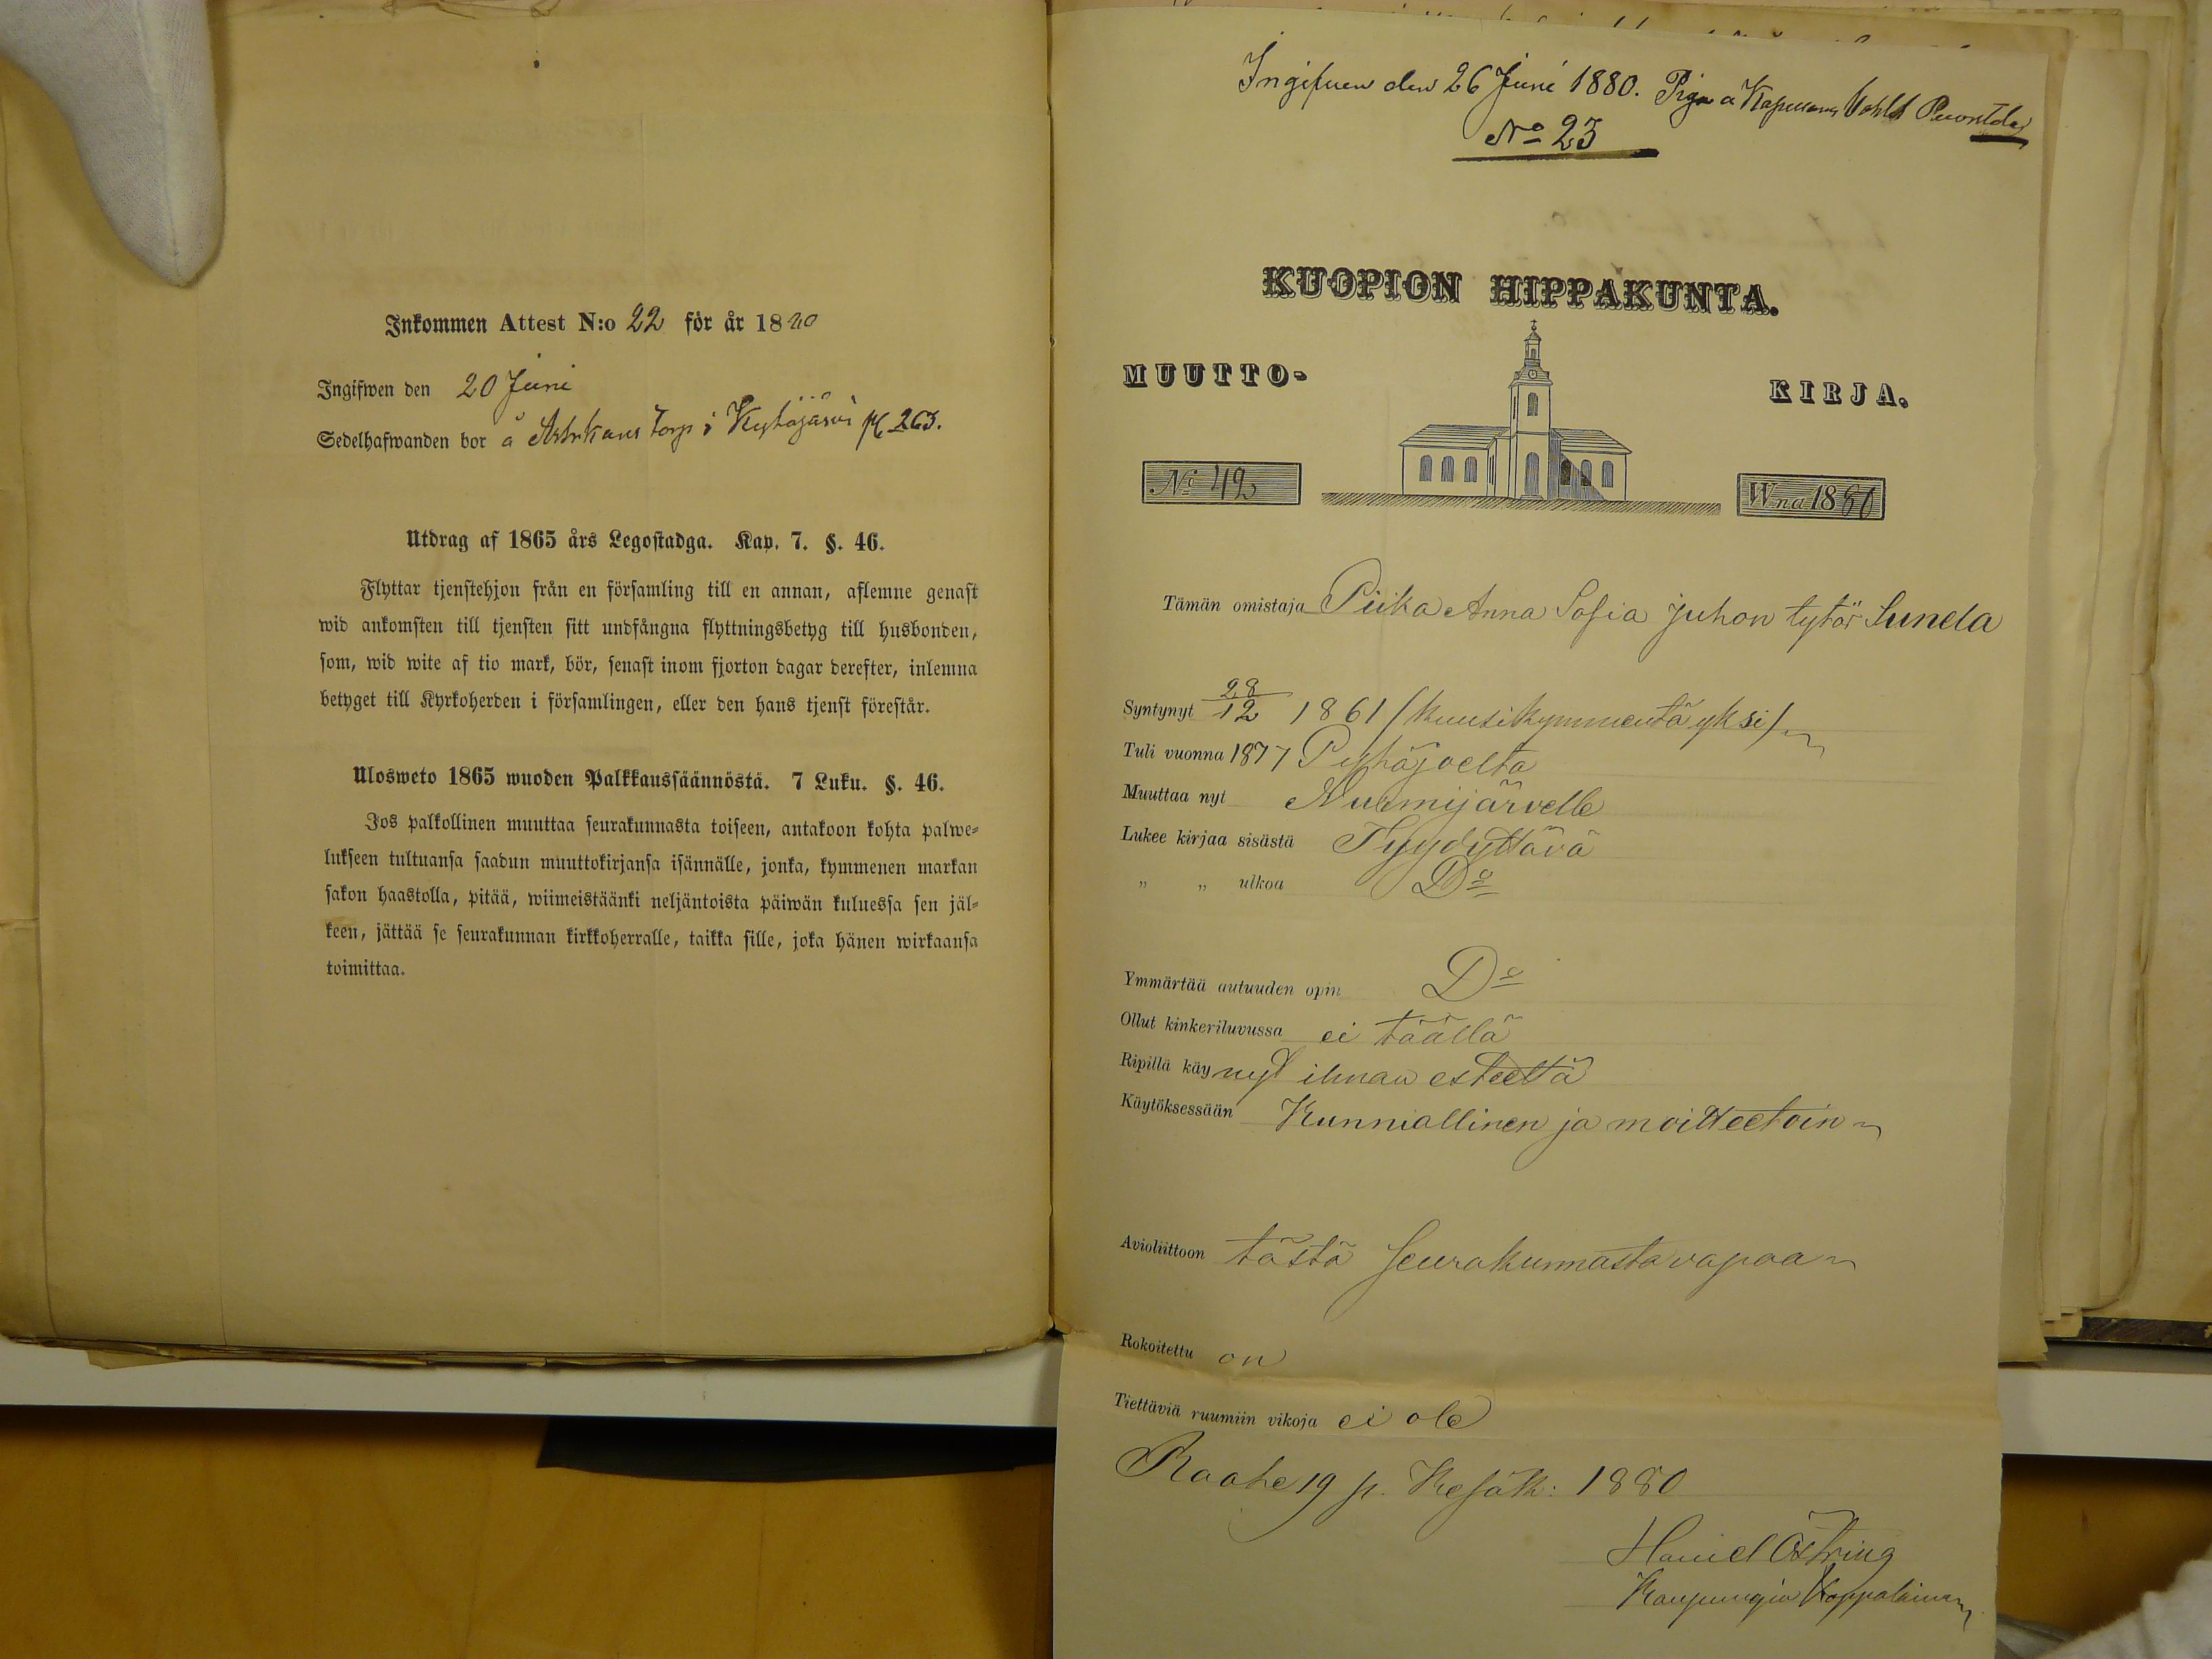 Inkommen Attest N:o 22 för år 1880
Ingifwen den 20 Juni
Sedelhafwanden bor å torp i Kytäjärvi 263.
Utdrag af 1865 års Legostadga. Kap. 7. §. 46.
Flyttar tjenstehjon från en församling till en annan, aflemne genast
wid ankomsten till tjensten sitt undfångna flyttningsbetyg till husbonden,
som, wid wite af tio mark, bör, senast inom fjorton dagar derefter, inlemna
betyget till Kyrkoherden i församlingen, eller den hans tjenst förestår.
Ulosweto 1865 wuoden Palkkaussäännöstä. 7 Luku. §. 46.
Jos palkollinen muuttaa seurakunnasta toiseen, antakoon kohta palwe-
lukseen tultuansa saadun muuttokirjansa isännälle, jonka, kymmenen markan
sakon haastolla, pitää, wiimeistäänki neljäntoista päiwän kuluessa sen jäl-
keen, jättää se seurakunnan kirkkoherralle, taikka sille, joka hänen wirkaansa
toimittaa.
Ingifven den 26 Juni 1880. Piga a
No 23
KUOPION HIPPAKUNTA.
MUUTTO-
KIRJA.
No 42
Wna 1880
Tämän omistaja Piika Anna Sofia Juhon tytör Sunela
Syntynyt 28/12 1861 (kuusikymmentä yksi)
Tuli vuonna 1877 Pyhäjoelta
Muuttaa nyt Nurmijärvelle
Lukee kirjaa sisästä Tyydyttävä
" " ulkoa Do
Ymmärtää autuuden opin Do
Ollut kinkeriluvussa ei täällä
Ripillä käynyt ilman esteettä
Käytöksessään Kunniallinen ja moitteetoin
Avioliittoon tästä Seurakunnasta vapaa
Rokoitettu on
Tiettäviä ruumiin vikoja ei ole
Raahe 19 p. Kesäk: 1880
Östring
Kaupungin Kappalainen